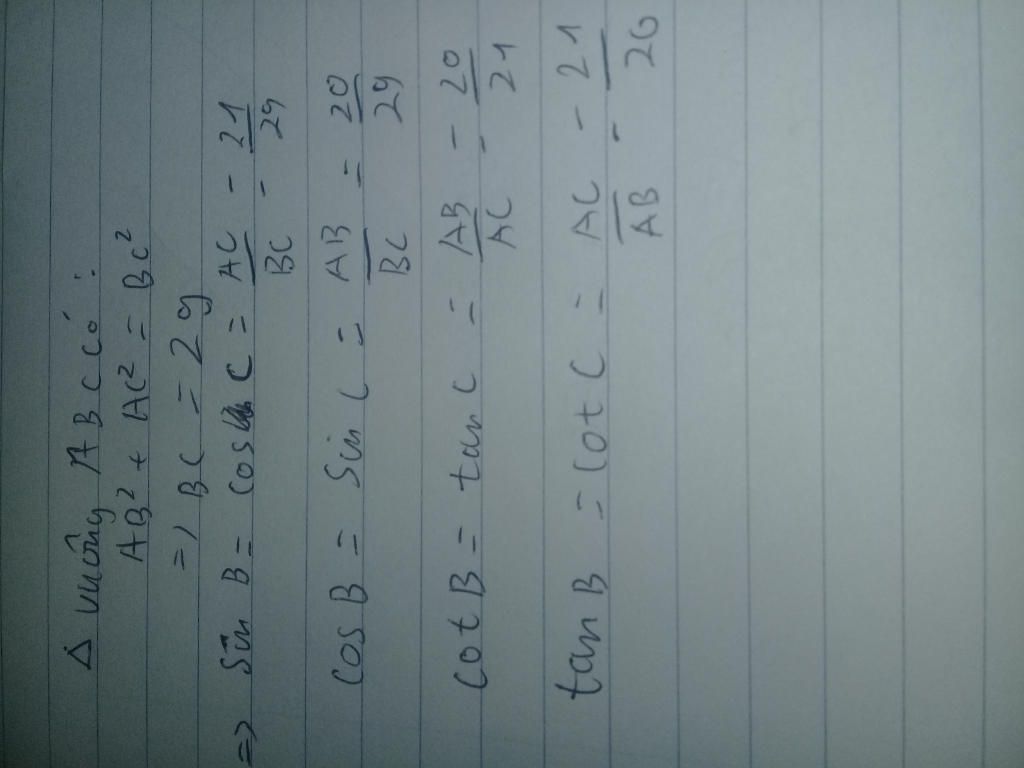 Δ vuông ABC có:
AB² + AC² = BC²
=> BC = 29
=> Sin B = cos C = AC/BC = 21/29
cos B = Sin C = AB/BC = 20/29
cot B = tan C = AB/AC = 20/21
tan B = cot C = AC/AB = 21/20